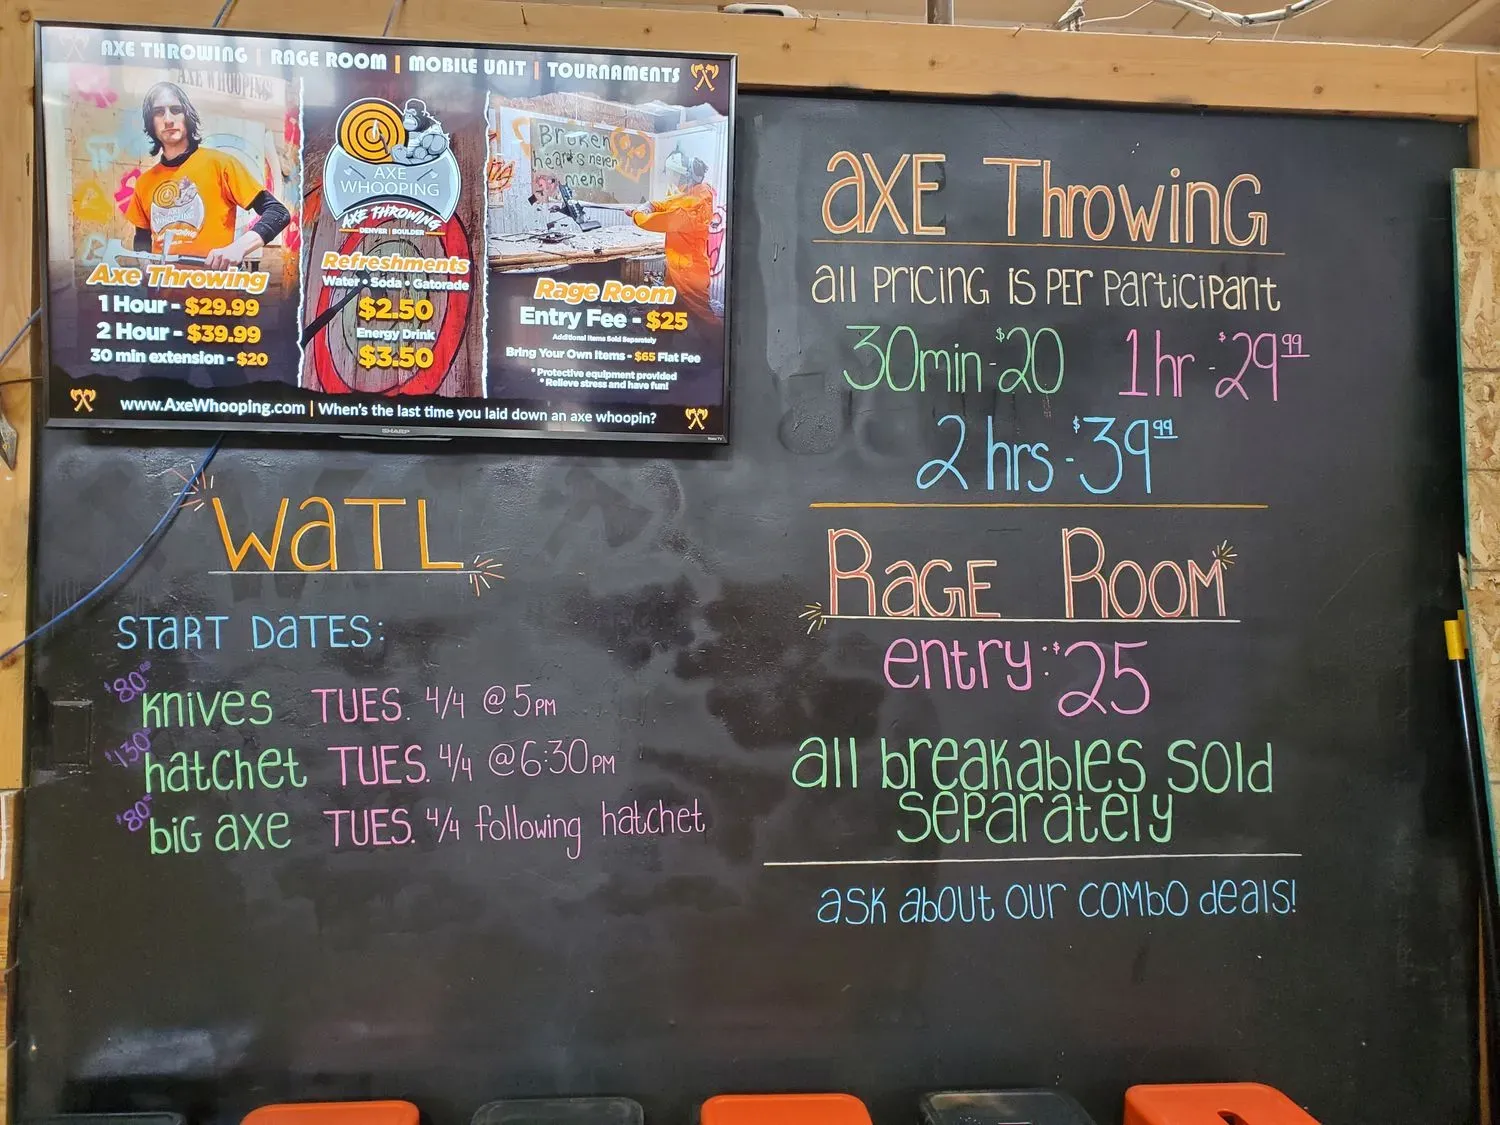 AXE THROWING | RAGE ROOM | MOBILE UNIT | TOURNAMENTS
AXE WHOOPING
Axe Throwing
1 Hour - $29.99
2 Hour - $39.99
30 min extension - $20
AXE
WHOOPING
AXE THROWING
DENVER | BOULDER
Refreshments
Water • Soda • Gatorade
$2.50
Energy Drink
$3.50
Broken
hearts never
mend
Rage Room
Entry Fee - $25
Additional Items Sold Separately
Bring Your Own Items - $65 Flat Fee
* Protective equipment provided
* Relieve stress and have fun!
www.AxeWhooping.com | When's the last time you laid down an axe whoopin?
SHARP
Roku TV
WATL
START DATES:
$80.00 knives TUES. 4/4 @ 5PM
$130 hatchet TUES. 4/4 @ 6:30PM
$80 big axe TUES. 4/4 following hatchet
AXE Throwing
all PRICING IS PER Participant
30min - $20 1hr - $29.99
2 hrs - $39.99
RAGE ROOM
entry: $25
all breakables sold
separately
ask about our combo deals!